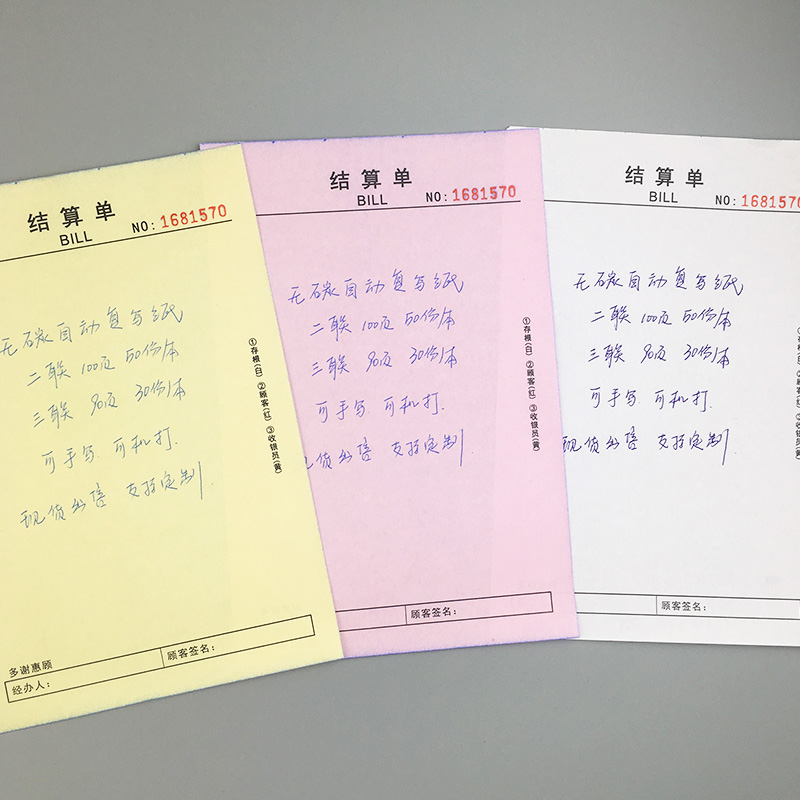 结算单
BILL
NO: 1681570
无碳自动复写纸
二联 100页 50份/本
三联 90页 30份/本
可手写 可机打.
现货出售 支持定制
①存根(白) ②顾客(红) ③收银员(黄)
多谢惠顾
经办人:
顾客签名:
结算单
BILL
NO: 1681570
无碳自动复写纸
二联 100页 50份/本
三联 90页 30份/本
可手写 可机打.
现货出售 支持定制
①存根(白) ②顾客(红) ③收银员(黄)
顾客签名:
结算单
BILL
NO: 1681570
无碳自动复写纸
二联 100页 50份/本
三联 90页 30份/本
可手写 可机打.
现货出售 支持定制
顾客签名: